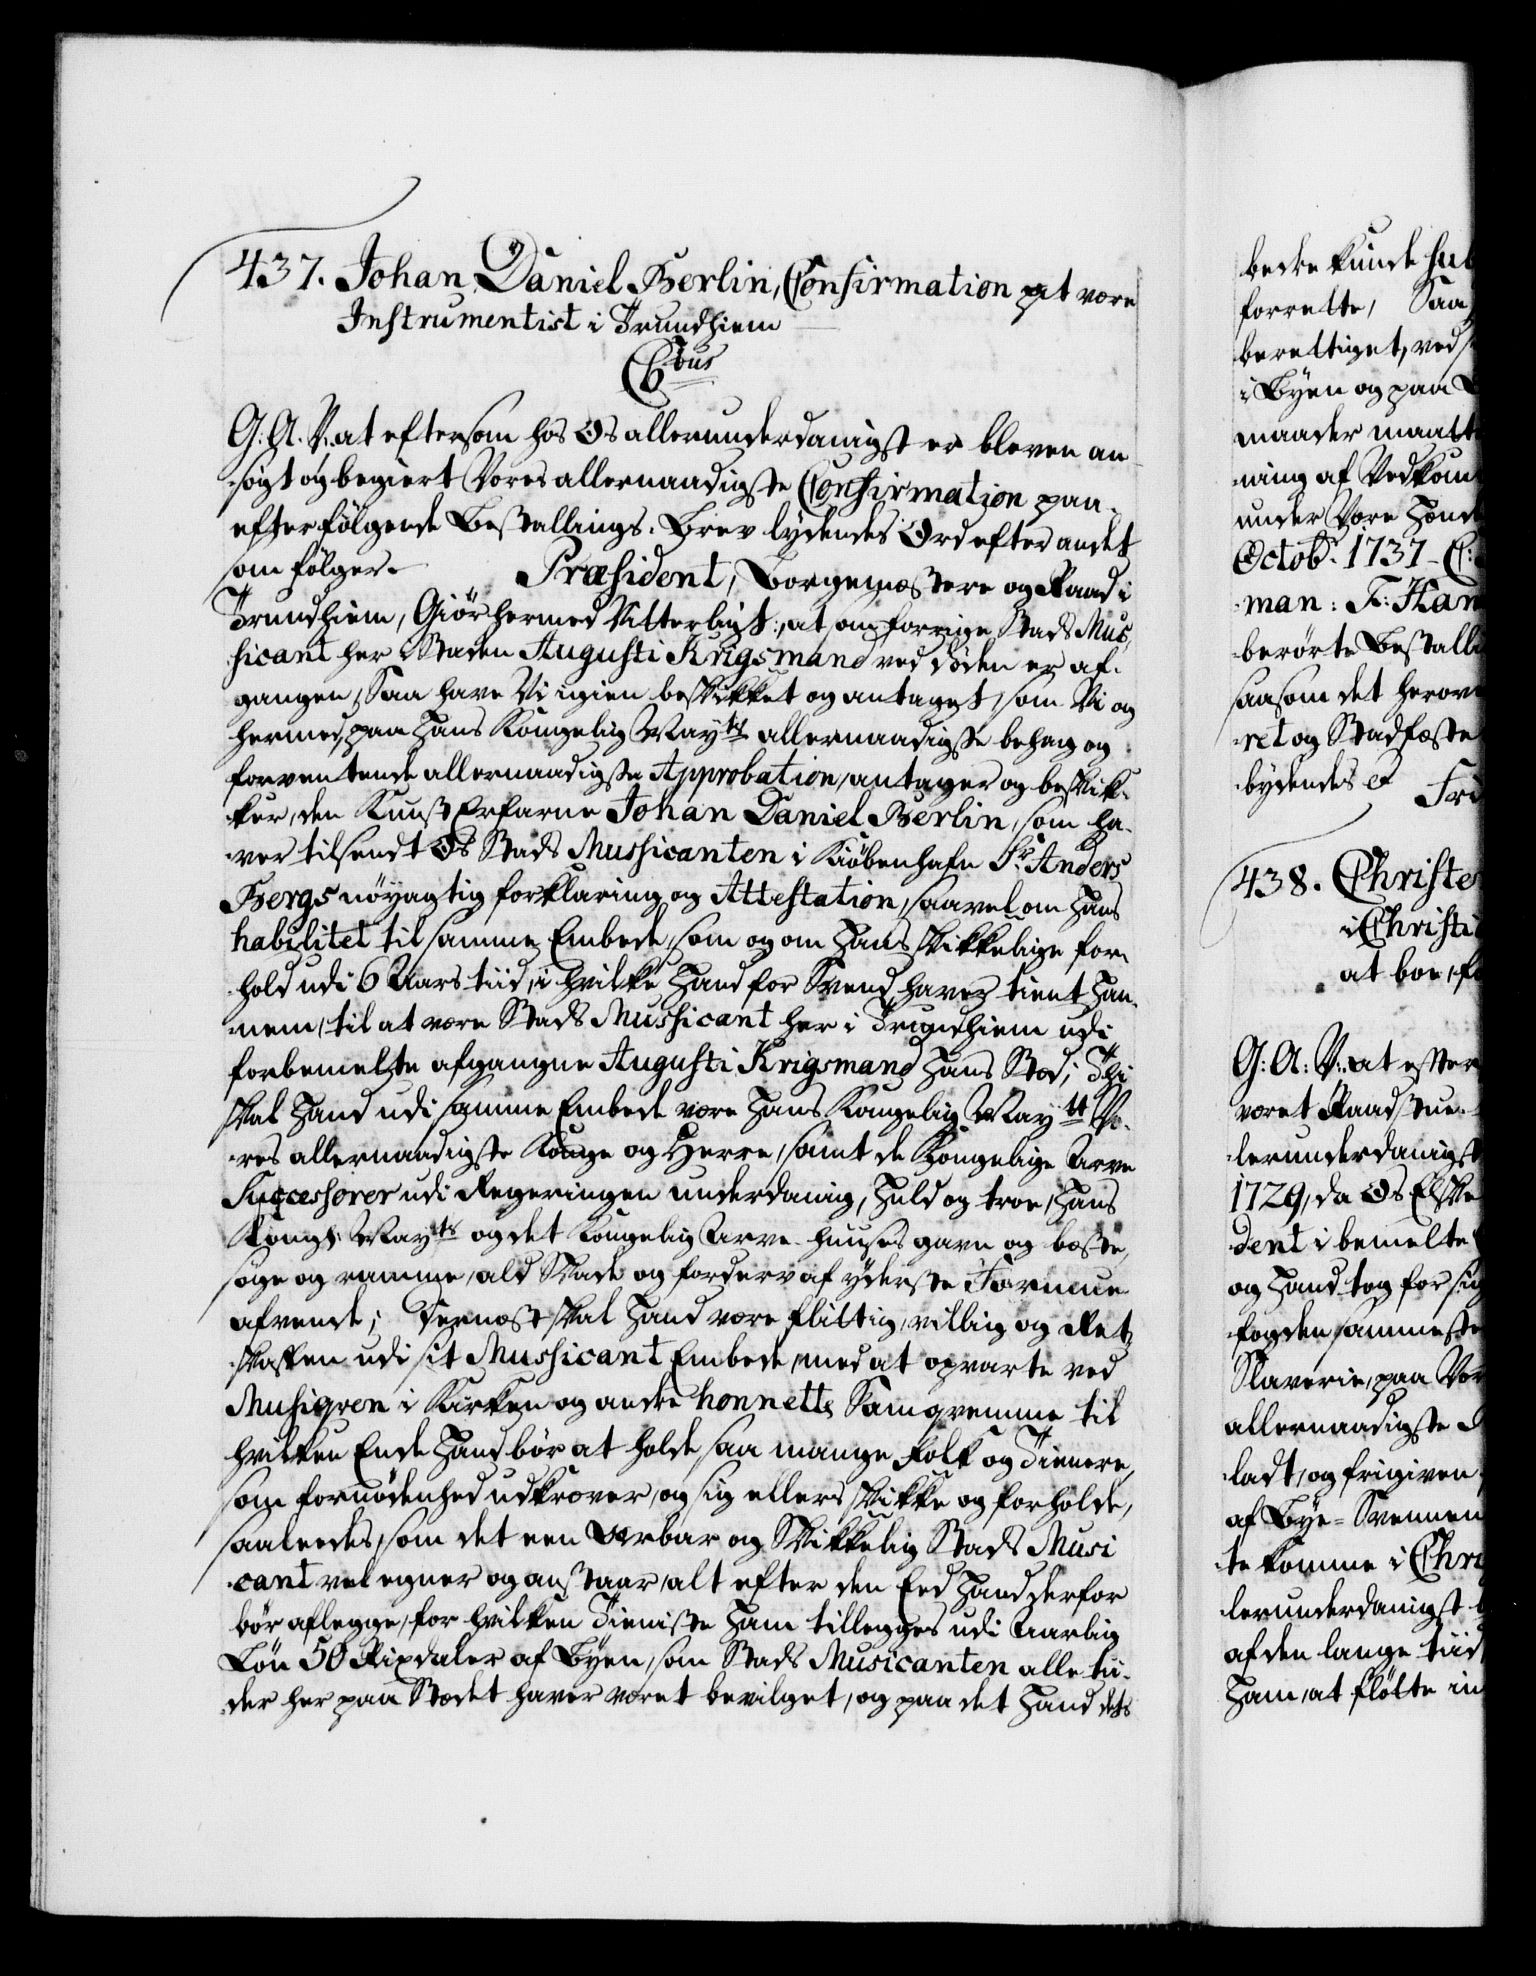 437. Johan Daniel Berlin, Confirmation at være
Instrumentist i Trundhiem
C6tus
G: A. V: at eftersom hos Os allerunderdanigst er bleven an
søgt og begiert Vores allernaadigste Confirmation paa
efterfølgende Bestallings-Brev lydendes Ord efter andet
som følger. Præsident, Borgemestere og Raad i
Trundhiem, Giør hermed Vitterligt, at som forrige Stads Mus
sicant her i Staden Augusti Krigsmand ved døden er af-
gangen, Saa have Vi igien beskikket og antaget, som Vi og
hermed, paa Hans Kongelig Mayts allernaadigste behag og
forventende allernaadigste Approbation, antager og beskik-
ker, den Kunst Erfarne Johan Daniel Berlin, som ha-
ver tilsendt Os Stads Mussicanten i Kiøbenhafn Sr. Anders
Bergs nøyagtig forklaring og Attestation, saavel om Hans
habilitet til samme Embede, som og om Hans skikkelige for-
hold udi 6 Aars tiid, i hvilke Hand for Svend haver tient Ham-
nem, til at være Stads Mussicant her i Trundhiem udi
forbemelte afgangne Augusti Krigsmand Hans Sted; Thi
skal Hand udi samme Embede være Hans Kongelig Maytt Vo-
res allernaadigste Konge og Herre, samt de Kongelige Arve
Successorer udi Regieringen underdanig, Huld og troe, Hans
Kongl: Mayts og det Kongelig Arve-huuses gavn og beste,
søge og ramme, ald Skade og forderv af yderste Formue
afvende; Dernest skal Hand være flittig, villig og Ret-
skaffen udi sit Mussicant Embede, med at opvarte ved
Musiqven i Kirken og andre honnette Samqvemme til
hvilken Ende Hand bør at holde saa mange Folk og Tienere,
som fornødenhed udkræver, og sig ellers skikke og forholde,
saaledes, som det een Ærbar og Skikkelig Stads Musi
cant vel egner og anstaar, alt efter den Eed Hand derfor
bør aflegge, for hvilken Tieniste Ham tillegges udi Aarlig
Løn 50 Rixdaler af Byen, som Stads Musicanten alle tii-
der her paa Stedet haver været bevilget, og paa det Hand dets
bedre kunde
forrette, Saa
berettiget, ved
i Byen og paa
maader maatte
ning af Vedkom
under Vore Hænd
Octobr. 1737 - C:
man: F: Han
berørte Bestalli
saasom det herove
ret og Stadfæste
bydendes et Fri
438. Christe
i Christi
at boe, fo
G: A: V: at efter
været Raadstue-
lerunderdanigst
1729, da Os Elske
dent i bemelte
og Hand tog for sig
fogden sammeste
Slaverie, paa Vor
allernaadigste
ladt, og frigiven
af Bye-Svennen
te komme i Chri
lerunderdanigst
af den lange tiid
Ham, at fløtte in